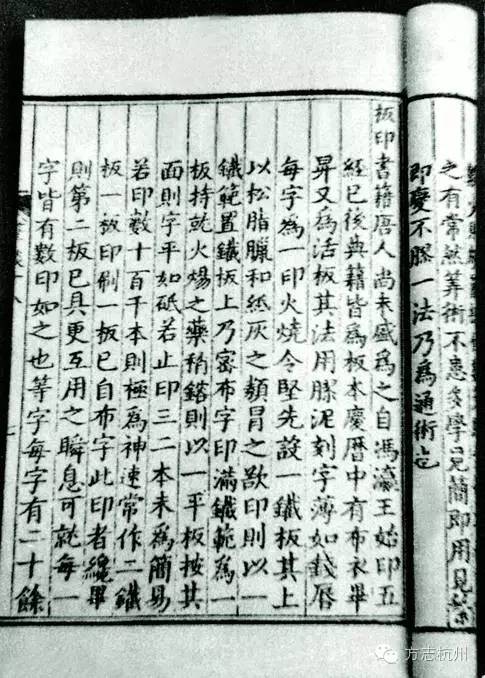 之有常然筭術不患多學見簡即用見繁
即變不膠一法乃爲通術也
板印書籍唐人尚未盛爲之自馮瀛王始印五
經已後典籍皆爲板本慶曆中有布衣畢
昇又爲活板其法用膠泥刻字薄如錢唇
每字爲一印火燒令堅先設一鐵板其上
以松脂臘和紙灰之類冒之欲印則以一
鐵範置鐵板上乃密布字印滿鐵範爲一
板持就火煬之藥稍鎔則以一平板按其
面則字平如砥若止印三二本未爲簡易
若印數十百千本則極爲神速常作二鐵
板一板印刷一板已自布字此印者纔畢
則第二板已具更互用之瞬息可就每一
字皆有數印如之也等字每字有二十餘
方志杭州